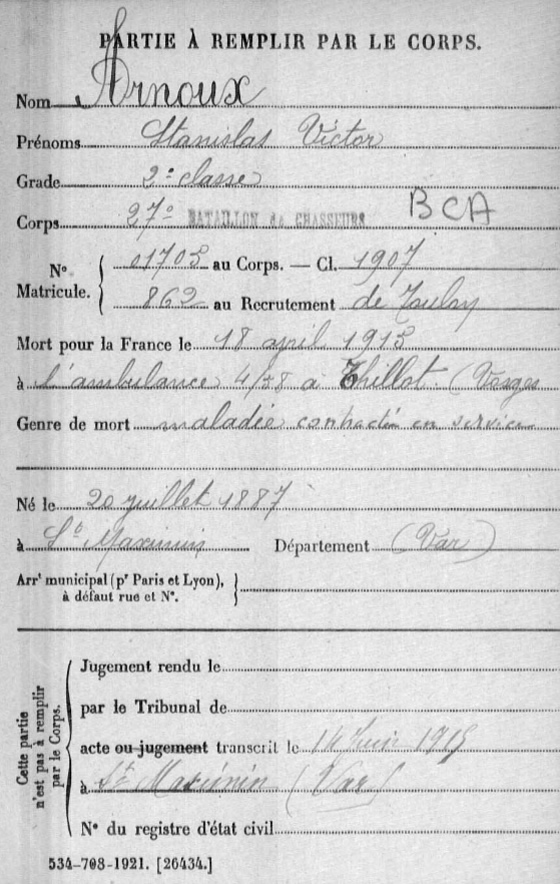 PARTIE À REMPLIR PAR LE CORPS.
Nom Arnoux
Prénoms Stanislas Victor
Grade 2e classe
Corps 27e BATAILLON de CHASSEURS BCA
N° Matricule. 01705 au Corps. — Cl. 1907
862 au Recrutement de Toulon
Mort pour la France le 18 avril 1915
à l'ambulance 4/58 à Thillot. (Vosges
Genre de mort maladie contractée en service
Né le 20 juillet 1887
à St Maximin Département (Var)
Arrt municipal (pr Paris et Lyon), à défaut rue et N°.
Cette partie n'est pas à remplir par le Corps.
Jugement rendu le
par le Tribunal de
acte ou jugement transcrit le 14 Juin 1915
à St Maximin (Var)
N° du registre d'état civil
534-708-1921. [26434.]